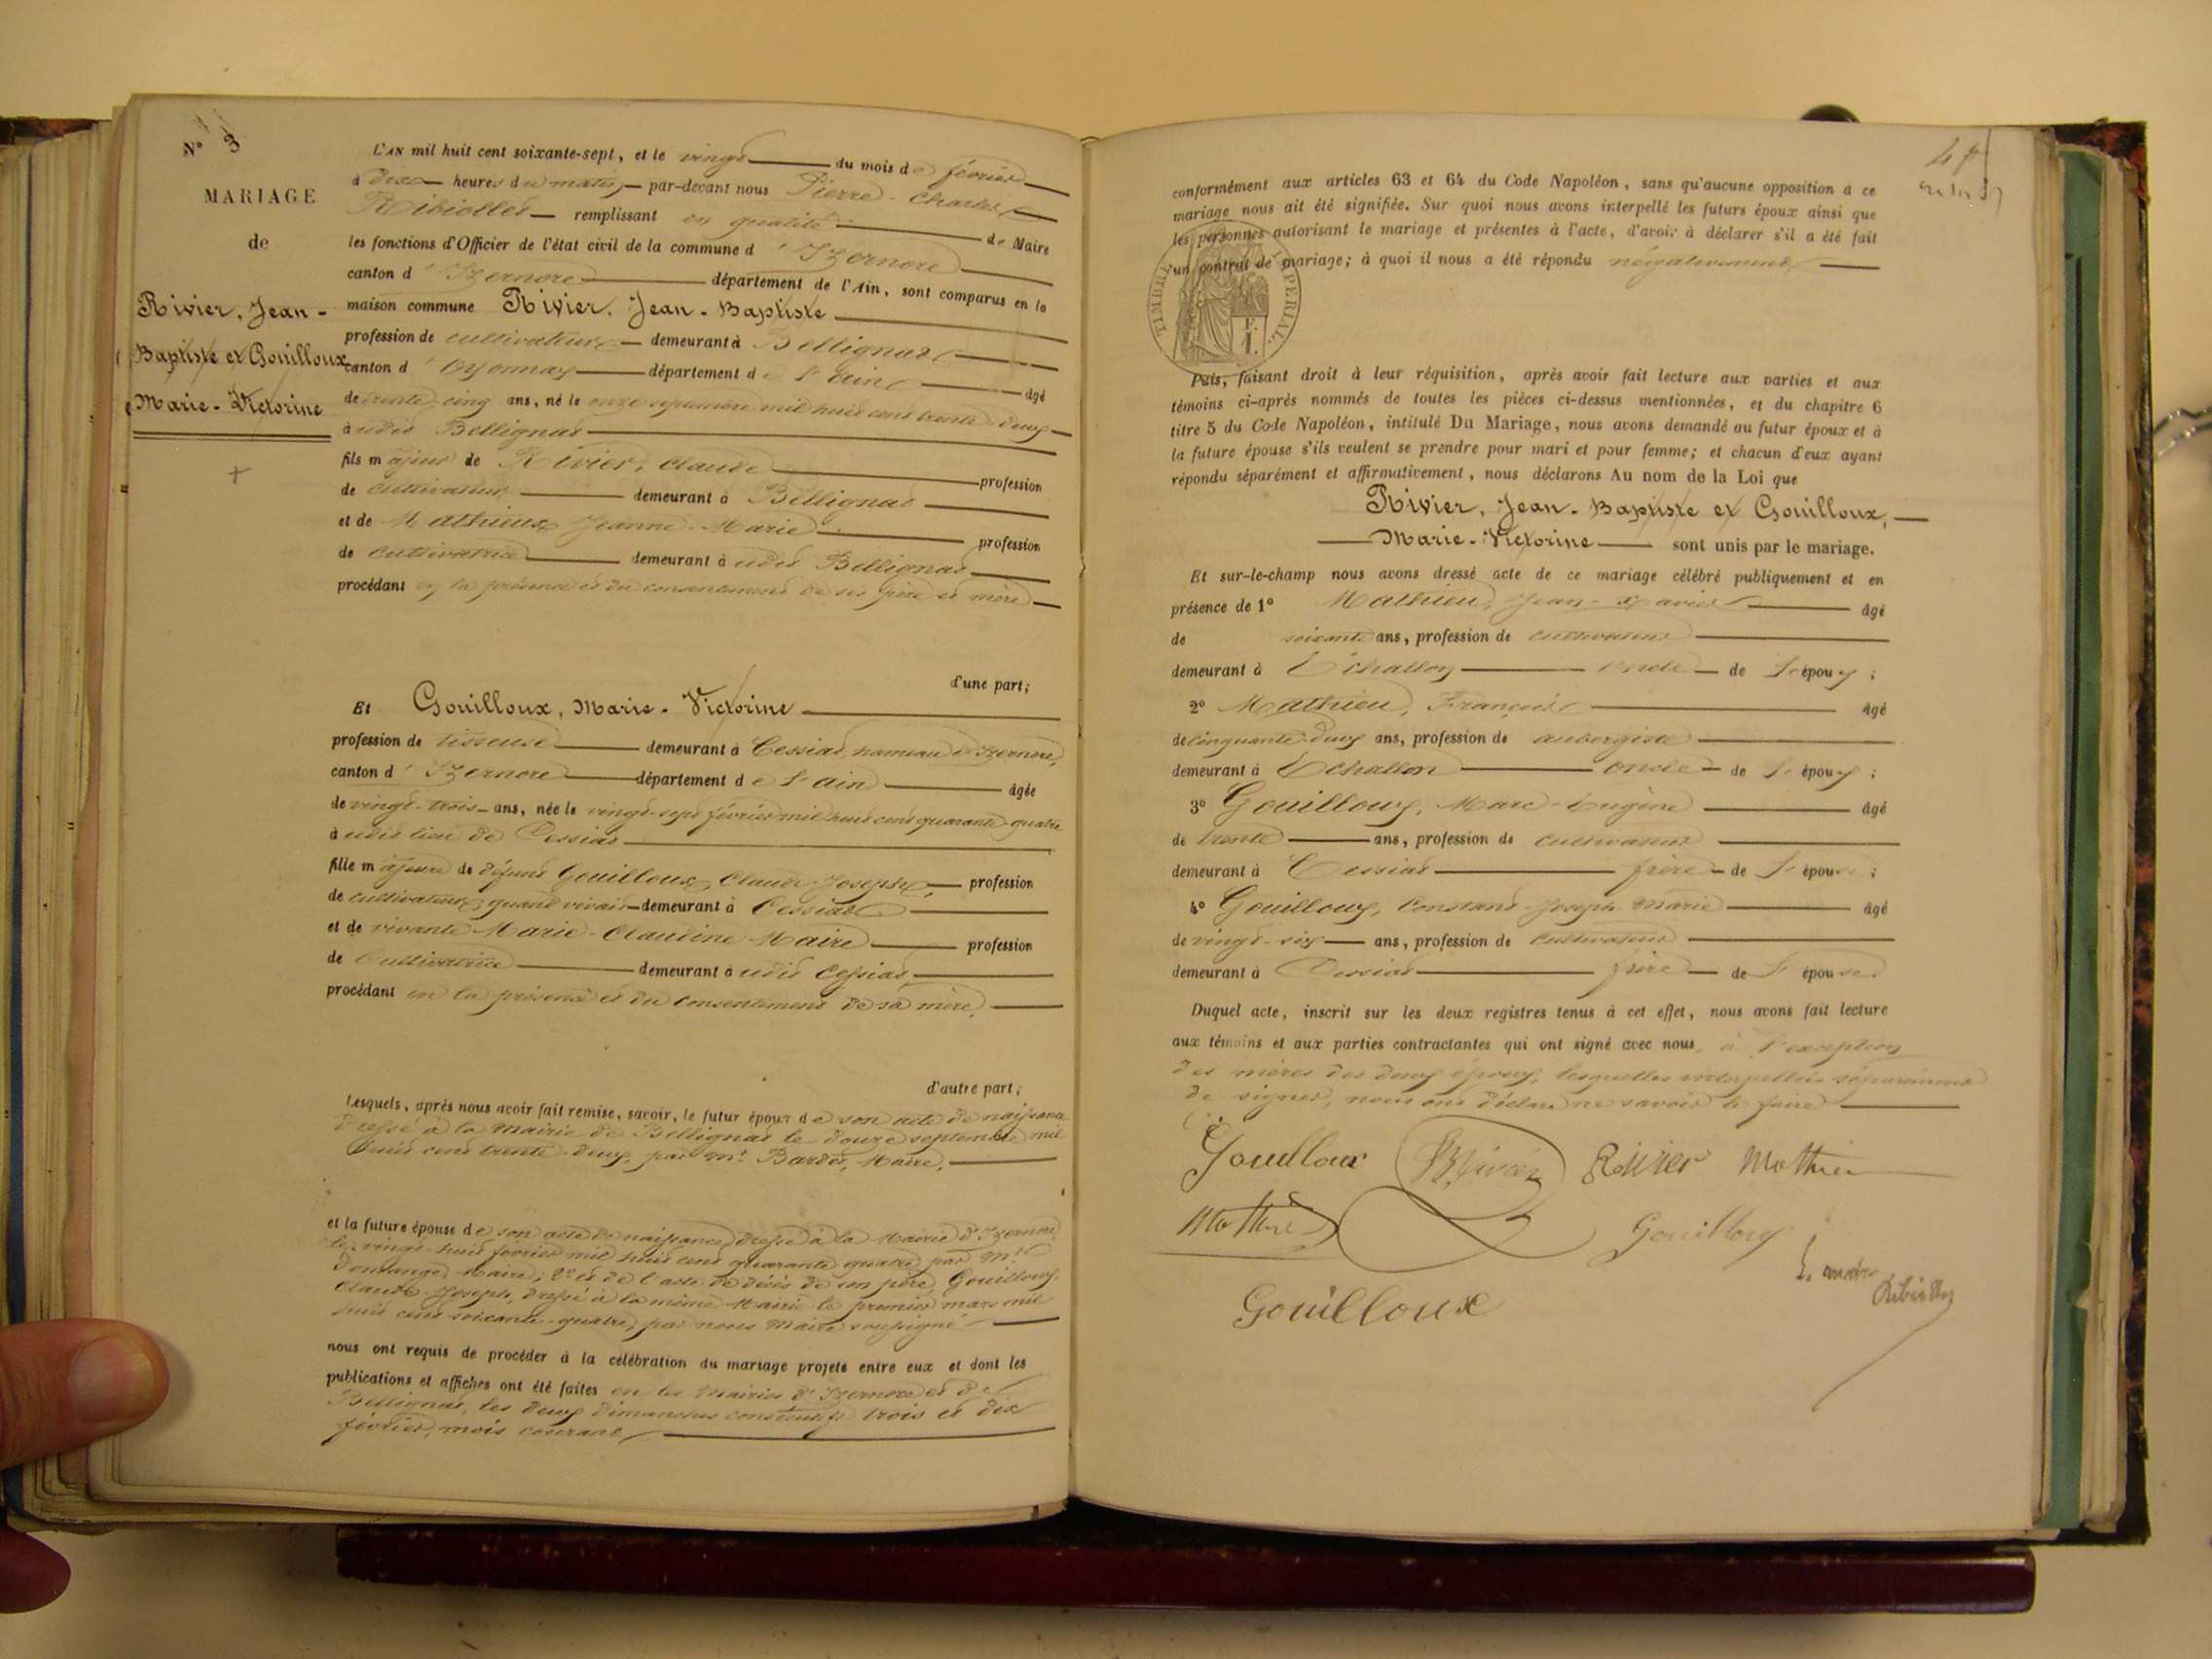 N° 3
MARIAGE
de
Rivier, Jean-
Baptiste et Gouilloux
Marie-Victorine
L'AN mil huit cent soixante-sept, et le vingt du mois de février
à dix heures du matin, par-devant nous Pierre-Charles
Ribiollet remplissant en qualité de Maire
les fonctions d'Officier de l'état civil de la commune d'Izernore
canton d'Izernore département de l'Ain, sont comparus en la
maison commune Rivier, Jean-Baptiste
profession de cultivateur demeurant à Bellignat
canton d'Oyonnax département de l'Ain âgé
de trente cinq ans, né le onze septembre mil huit cent trente-deux
à udit Bellignat
fils majeur de Rivier, Claude profession
de cultivateur demeurant à Bellignat
et de Mathieux Jeanne-Marie profession
de cultivatrice demeurant à udit Bellignat
procédant en la présence et du consentement de ses père et mère
d'une part;
Et Gouilloux, Marie-Victorine
profession de tisseuse demeurant à Cessiat, hameau d'Izernore,
canton d'Izernore département de l'Ain âgée
de vingt-trois ans, née le vingt-sept février mil huit cent quarante-quatre
à udit lieu de Cessiat
fille majeure de défunt Gouilloux, Claude-Joseph, profession
de cultivateur quand vivait demeurant à Cessiat
et de vivante Marie-Claudine Maire profession
de cultivatrice demeurant à udit Cessiat,
procédant en la présence et du consentement de sa mère,
d'autre part;
Lesquels, après nous avoir fait remise, savoir, le futur époux de son acte de naissance
dressé à la mairie de Bellignat le douze septembre mil
huit cent trente-deux, par Mr Bardet, Maire,
et la future épouse de son acte de naissance dressé à la Mairie d'Izernore
le vingt-huit février mil huit cent quarante quatre par Mr
Domange, Maire; 2° et de l'acte de décès de son père, Gouilloux
Claude-Joseph, dressé à la même Mairie le premier mars mil
huit cent soixante-quatre, par nous Maire soussigné
nous ont requis de procéder à la célébration du mariage projeté entre eux et dont les
publications et affiches ont été faites en les Mairies d'Izernore et de
Bellignat, les deux dimanches consécutifs trois et dix
février, mois courant,
conformément aux articles 63 et 64 du Code Napoléon, sans qu'aucune opposition à ce
mariage nous ait été signifiée. Sur quoi nous avons interpellé les futurs époux ainsi que
les personnes autorisant le mariage et présentes à l'acte, d'avoir à déclarer s'il a été fait
un contrat de mariage; à quoi il nous a été répondu négativement
TIMBRE IMPERIAL
Puis, faisant droit à leur réquisition, après avoir fait lecture aux parties et aux
témoins ci-après nommés de toutes les pièces ci-dessus mentionnées, et du chapitre 6
titre 5 du Code Napoléon, intitulé Du Mariage, nous avons demandé au futur époux et à
la future épouse s'ils veulent se prendre pour mari et pour femme; et chacun d'eux ayant
répondu séparément et affirmativement, nous déclarons Au nom de la Loi que
Rivier, Jean-Baptiste et Gouilloux,
Marie-Victorine sont unis par le mariage.
Et sur-le-champ nous avons dressé acte de ce mariage célébré publiquement et en
présence de 1° Mathieu, Jean-Xavier âgé
de soixante ans, profession de cultivateur
demeurant à Echallon oncle de l'époux;
2° Mathieu, François âgé
de cinquante-deux ans, profession de aubergiste
demeurant à Echallon oncle de l'époux;
3° Gouilloux, Marc-Eugène âgé
de trente ans, profession de cultivateur
demeurant à Cessiat frère de l'épouse;
4° Gouilloux, Constant-Joseph-Marie âgé
de vingt-six ans, profession de cultivateur
demeurant à Cessiat frère de l'épouse.
Duquel acte, inscrit sur les deux registres tenus à cet effet, nous avons fait lecture
aux témoins et aux parties contractantes qui ont signé avec nous, à l'exception
des mères des deux époux, lesquelles interpellées séparément
de signer, nous ont déclaré ne savoir le faire
Gouilloux Rivier Rivier Mathieu
Mathieu Gouilloux
Gouilloux
Le maire
Ribiollet